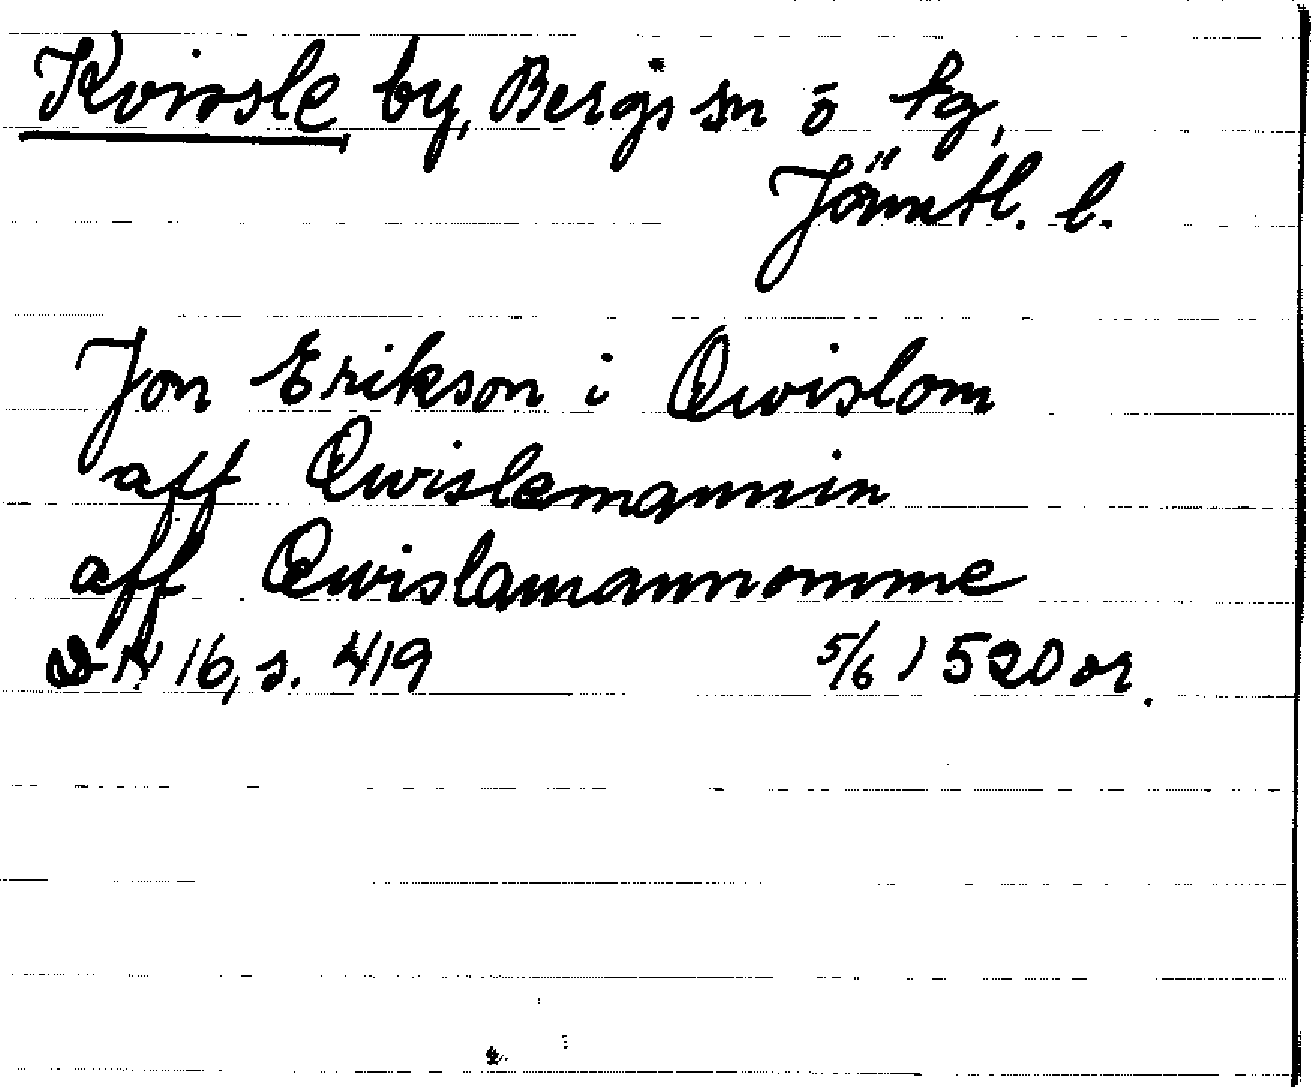 Kvissle by, Bergs sn o kg,
Jämtl. l.
Jon Erikson i Qwislom
aff Qwislemannin
aff Qwislamannomme
DN 16, s. 419 5/6 1520 or.